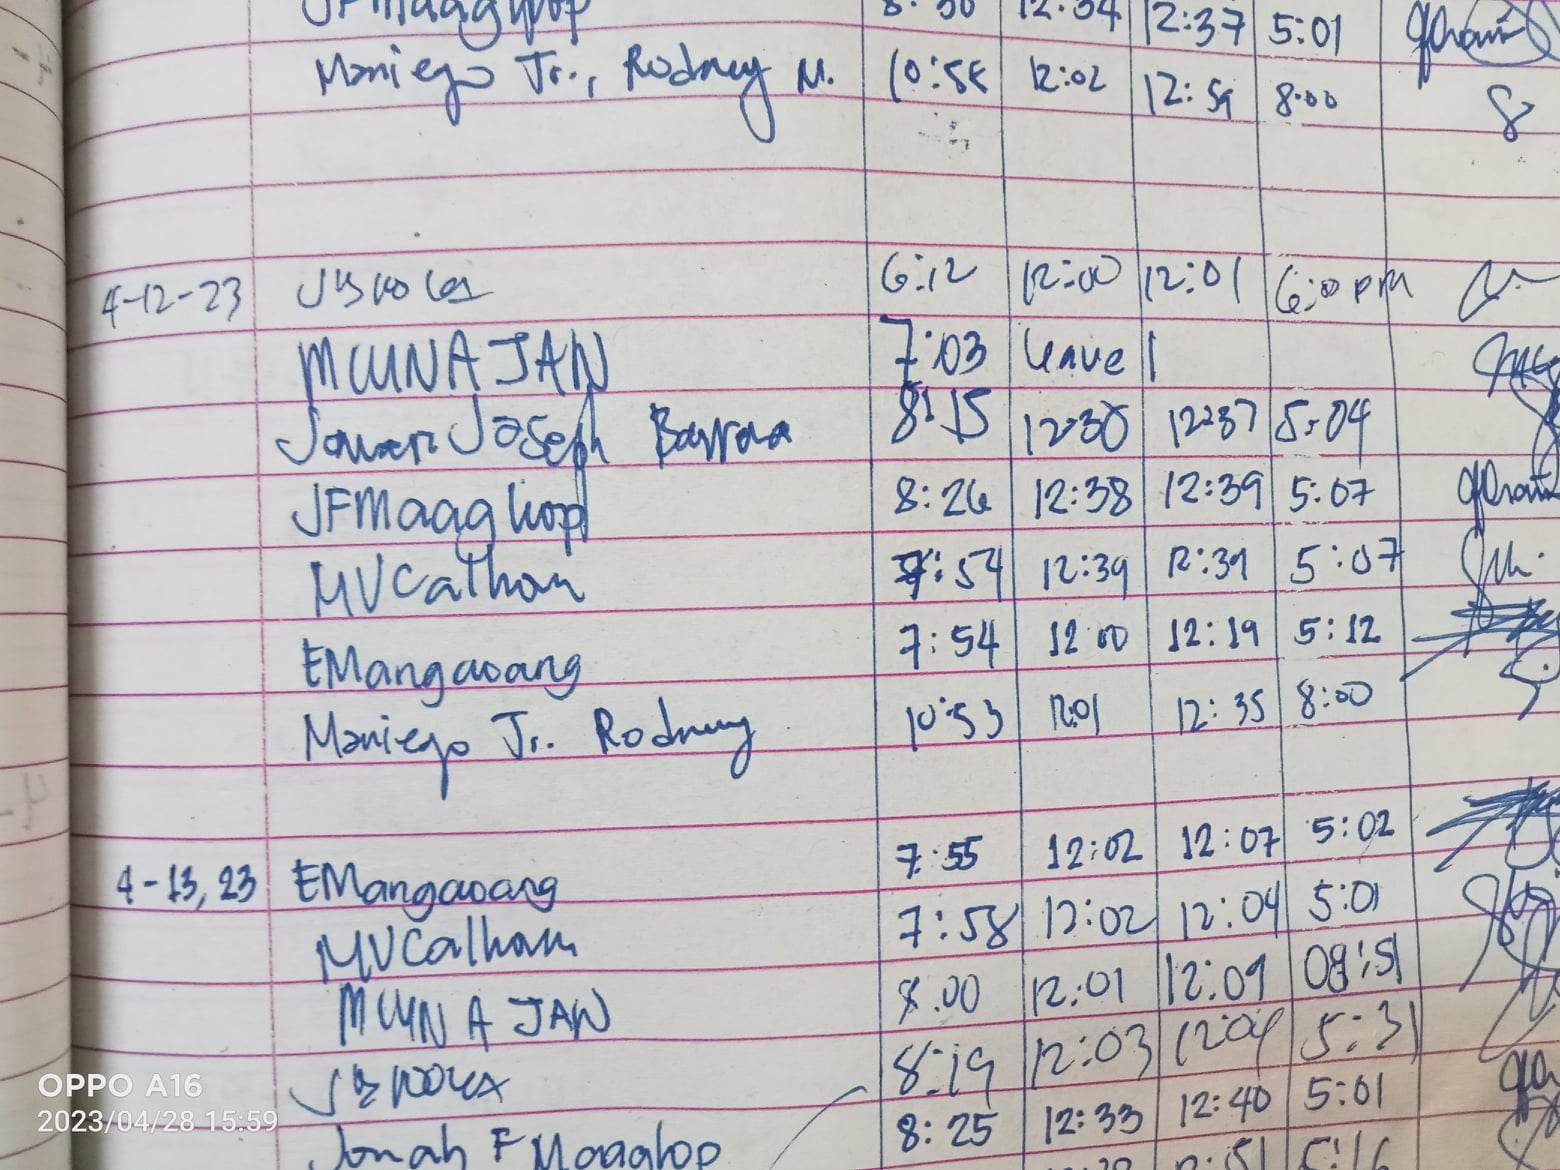 JFMaaghop 8:30 12:34 12:37 5:01
Maniego Jr., Rodney M. 10:58 12:02 12:59 8:00
4-12-23 6:12 12:00 12:01 6:00 pm
MWNA JAN 7:03 leave
Joseph 8:15 12:30 12:37 5:04
JFMaaghop 8:26 12:38 12:39 5:07
MVCalhan 7:54 12:39 12:39 5:07
EMangaoang 7:54 12:00 12:19 5:12
Maniego Jr. Rodney 10:53 12:01 12:35 8:00
4-13, 23 EMangaoang 7:55 12:02 12:07 5:02
MVCalham 7:58 12:02 12:04 5:01
MWNA JAN 8:00 12:01 12:09 08:51
8:19 12:03 12:04 5:31
Jonah F Maaghop 8:25 12:33 12:40 5:01
:51 5:16
OPPO A16
2023/04/28 15:59